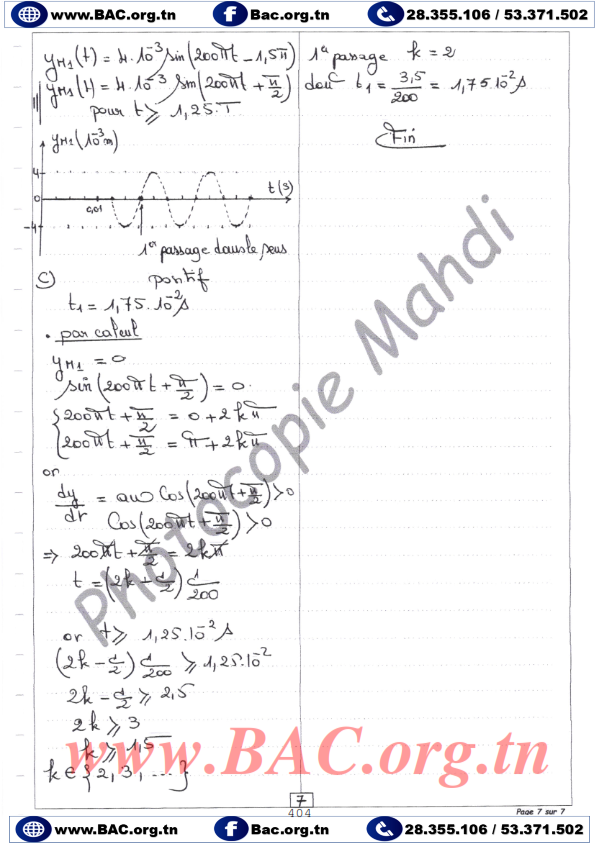 www.BAC.org.tn Bac.org.tn 28.355.106 / 53.371.502
y_M1(t) = 4.10^-3 sin(200πt - 1,5π)
y_M1(t) = 4.10^-3 sin(200πt + π/2)
pour t ≥ 1,25.T
y_M1(10^-3 m)
4
0
-4
0,01
t(s)
1er passage dans le sens
positif
c)
t1 = 1,75.10^-2 s
• par calcul
y_M1 = 0
sin(200πt + π/2) = 0
{ 200πt + π/2 = 0 + 2kπ
{ 200πt + π/2 = π + 2kπ
or
dy/dt = aω cos(200πt + π/2) > 0
cos(200πt + π/2) > 0
⇒ 200πt + π/2 = 2kπ
t = (2k - 1/2) 1/200
or t ≥ 1,25.10^-2 s
(2k - 1/2) 1/200 ≥ 1,25.10^-2
2k - 1/2 ≥ 2,5
2k ≥ 3
k ≥ 1,5
k ∈ {2, 3, ...}
1er passage k = 2
donc t1 = 3,5/200 = 1,75.10^-2 s
Fin
Photocopie Mahdi
www.BAC.org.tn
7
404
Page 7 sur 7
www.BAC.org.tn Bac.org.tn 28.355.106 / 53.371.502